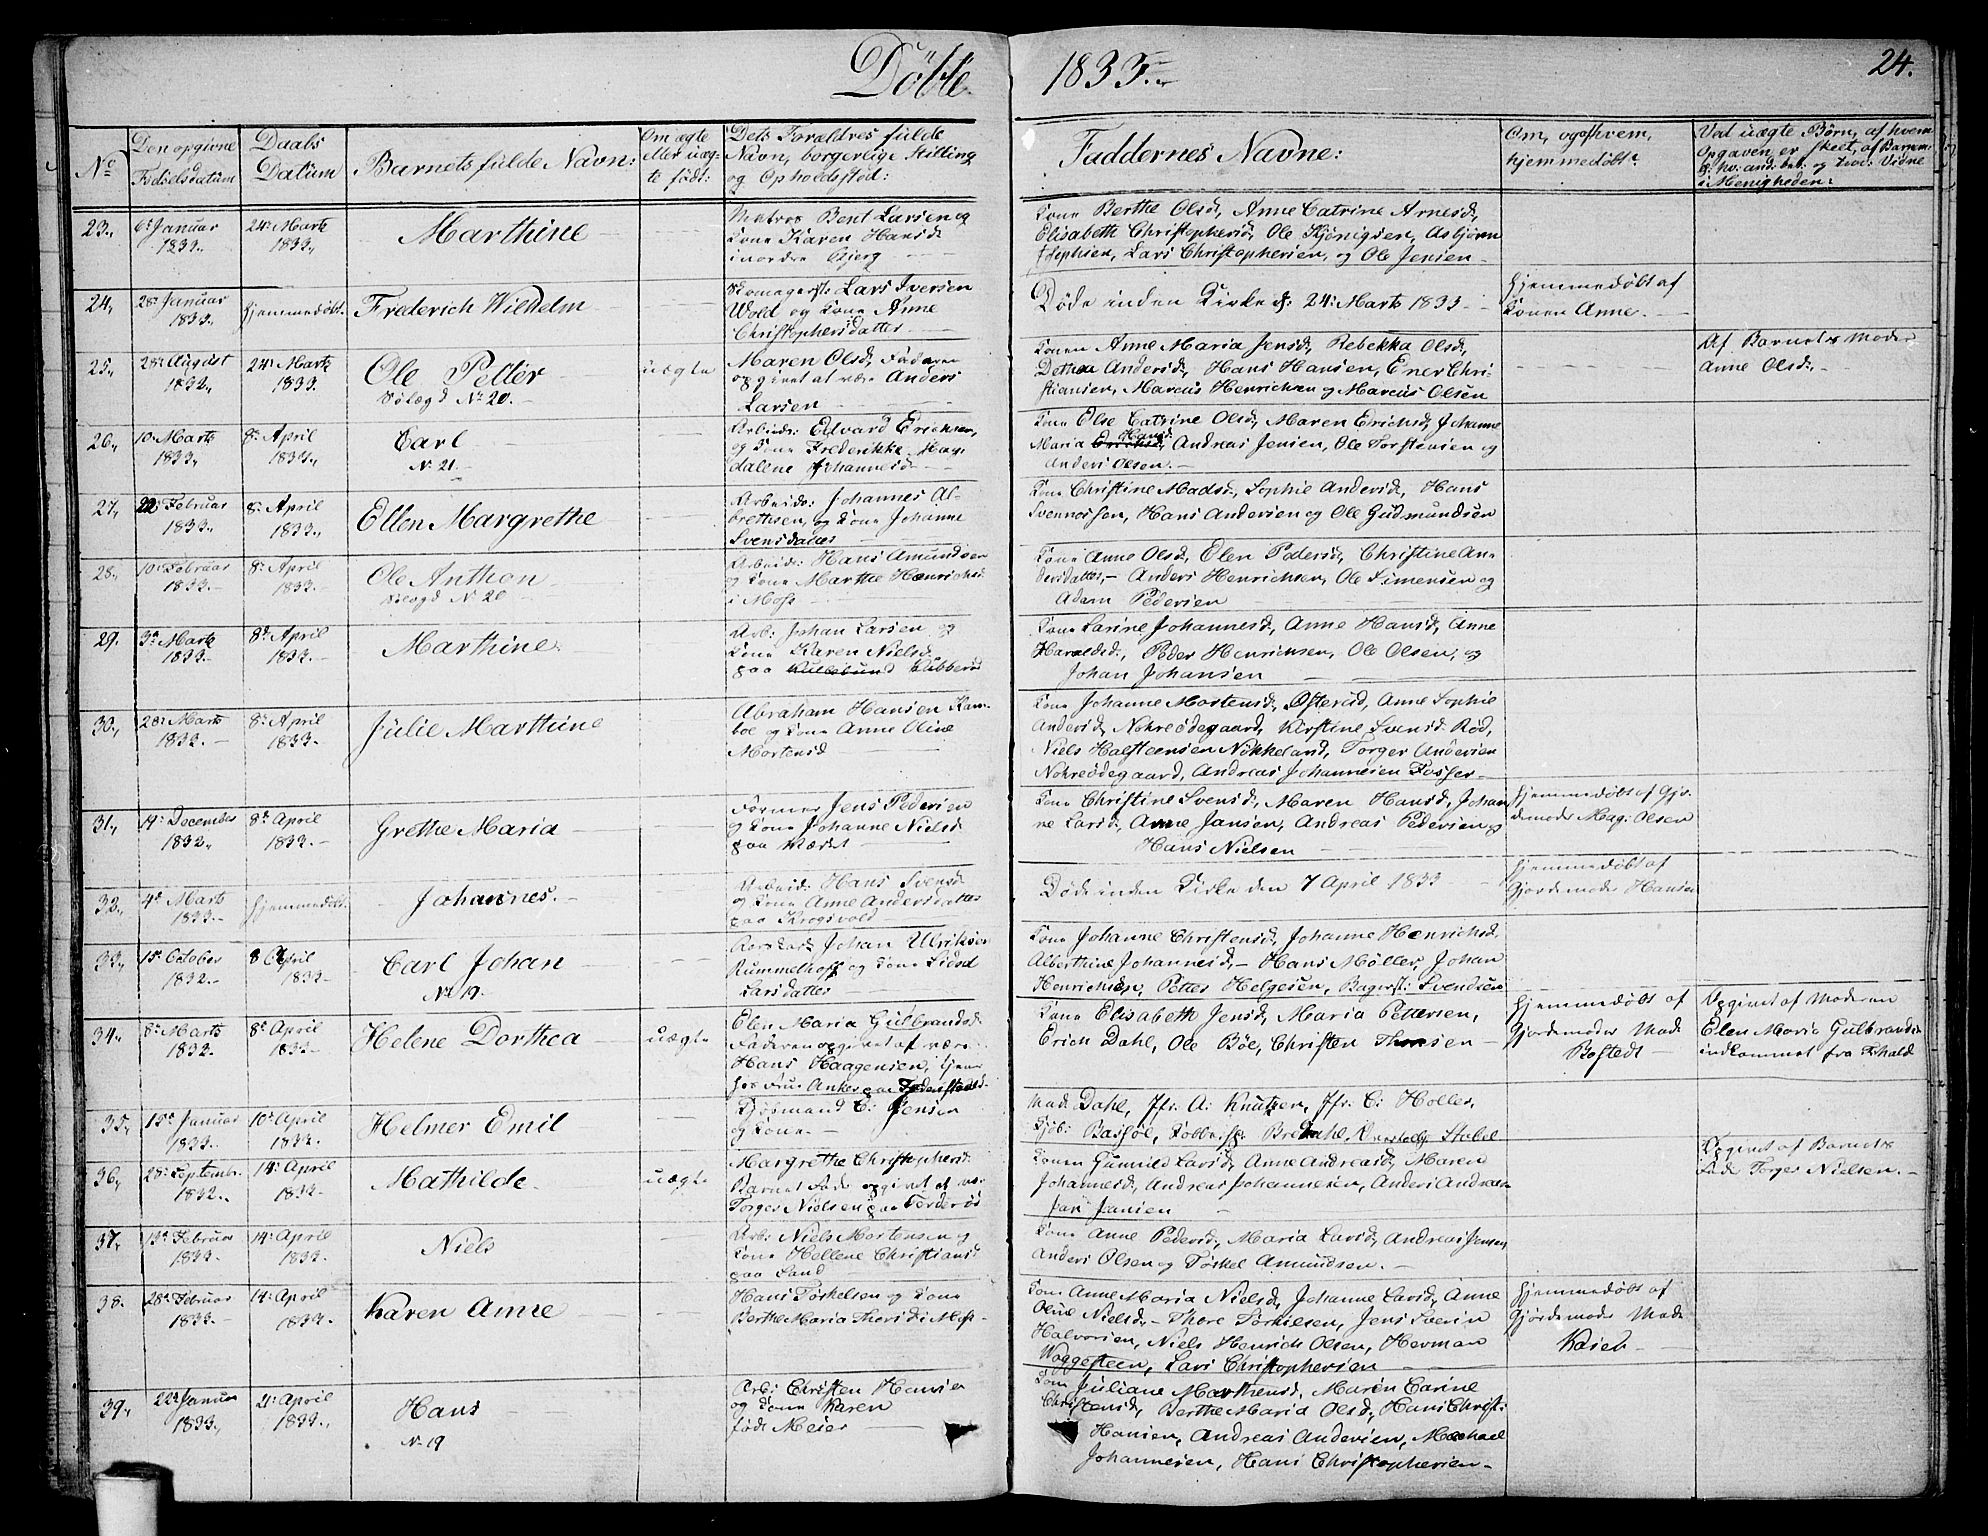 Döbte 1833.
24.
No
Den opgivne Födselsdatum
Daabs Datum
Barnets fulde Navn:
Om ægte eller uægte født:
Dets Forældres fulde Navn, borgerlige Stilling og Opholdsstæd:
Faddernes Navne:
Om, og af hvem, hjemmedøbt:
Ved uægte Børn, af hvem Opgaven er skeet, af Barnem:
i Menigheden:
23., 6. Januar 1833. 24. Marts 1833. Marthine
Matros Bent Larsen og
Kone Karen Hansd
Kone Berthe Olsd, Anne Catrine Arnesd,
Elisabeth Christophersd, Ole Kjönigsen, Asbjörn
Josephsen, Lars Christophersen, og Ole Jensen
24., 28. Januar 1833. hjemmedøbt. Frederich Wilhelm
Skomagers. Lars Iversen
Wold og Kone Anne
Christophersdatter
Døde inden Kirke d: 24. Marts 1833
hjemmedøbt af
Konen Anne.
25., 28. August 1832. 24. Marts 1833. Ole Petter uægte
No 20.
Maren Olsd, Faderen
opgivet at være Anders
Larsen
Konen Anne Maria Jensd, Rebekka Olsd,
Andersd, Hans Hansen, Ener Chri-
stiansen, Marcus Henrichsen og Marcus Olsen
Af Barnets Moder
Anne Olsd.
26., 10. Marts 1833. 8. April 1833. Carl
No 21.
Arbeids: Edvard Erichsen,
og Kone Frederikke Mag-
dalene Johannesd
Kone Else Catrine Olsd, Maren Erichsd, Johanne
Maria Hansd, Andreas Jensen, Ole Torstensen og
Anders Olsen.
27., 22. Februar 1833. 8. April 1833. Ellen Margrethe
Arbeids: Johannes Al-
brethsen, og Kone Johanne
Svensdatter
Kone Christine Madsd, Sophie Andersd, Hans
Svennessen, Hans Andersen og Ole Gudmundsen
28., 10. Februar 1833. 8. April 1833. Ole Anthon
No 20
Arbeids: Hans Amundsen
og Kone Marthe Henrichsd.
i Moss
Kone Anne Olsd, Elen Pedersd, Christine An-
dersdatter, Anders Henrichsen, Ole Simensen og
Adam Pedersen
29. 3. Marts 1833. 8. April 1833. Marthine
Arb: Johan Larsen og
Kone Karen Nielsd
paa Kullebund Kubberød
Kone Karine Johannesd, Anne Hansd, Anne
Haraldsd, Peder Henrichsen, Ole Olsen, og
Johan Johansen
30. 28. Marts 1833. 8. April 1833. Julie Marthine
Abraham Hansen Kam-
boe og Kone Anne Oline
Mortensd
Kone Johanne Mortensd, Østerud, Anne Sophie
Andersd, Nohreødegaard, Kirstine Svensd. Rød,
Niels Halsteensen Nøkkeland, Torger Andersen
Nohreødegaard, Andreas Johannesen Fosser
31., 14. December 1832. 8. April 1833. Grethe Maria
Former Jens Pedersen
og Kone Johanne Nielsd
paa Værket
Kone Christine Svensd, Maren Hansd, Johan
ne Larsd, Arne Jansen, Andreas Pedersen og
Hans Nielsen
hjemmedøbt af Gjor-
demoder Mag: Olsen
32., 4. Marts 1833. hjemmedøbt. Johannes.
Arbeid: Hans Svensd
og Kone Anne Andersdatter
paa Krogsvold
Døde inden Kirke den 7 April 1833
hjemmedøbt af
Gjordemoder Hansen
33., 15. October 1832. 8 April 1833. Carl Johan
No 19.
Johan Ulriksen
Rummelhoff og Kone Sidsel
Larsdatter
Kone Johanne Christensd, Johanne Henrichsd,
Alberthine Johannesd, Hans Møller, Johan
Henrichsen, Petter Helgesen, Bagerst: Svendsen
34., 8. Marts 1833. 8. April 1833. Helene Dorthea uægte
Elen Maria Gulbrandsd.
Faderen opgivet at være
Hans Haagensen, tjener
hos Frue Anker paa Frederikshald
Kone Elisabeth Jensd, Maria Pettersen,
Erich Dahl, Ole Böe, Christen Thorsen
hjemmedøbt af
Gjordemoder Mad:
Bostedt
Opgivet af Moderen
Elen Maria Gulbrandsd
indkommet fra Fhald
35., 15. Januar 1833. 10. April 1833. Helmer Emil
Kjøbmand C: Jensen
og Kone
Mad: Dahl, Jfr. A: Knutzen, Jfr. C: Holler,
Kjöb: Basjöe, Bredahl, Stabel
36., 28. Septembr. 1832. 14. April 1833. Mathilde uægte
Margrethe Christophersd:
Barnets Fader opgivet at være
Torger Nielsen paa Forderød
Konen Gunnild Larsd, Anne Andreasd, Maren
Johannesd, Andreas Johannesen, Anders Andrea-
Jansen
Opgivet af Barnets
Fader Torger Nielsen.
37. 13. Februar 1833. 14. April 1833. Niels
Arb: Niels Mortensen og
Kone Hellene Christiansd
paa Sand
Kone Anne Pedersd, Maria Larsd, Andreas Jensen,
Anders Olsen og Torkel Amundsen.
38. 28. Februar 1833. 14. April 1833. Karen Anne
Hans Torkelsen og Kone
Berthe Maria Thorsd i Moss
Kone Anne Maria Nielsd, Johanne Larsd, Anne
Oline Nielsd, Thore Torkelsen, Jens Severin
Halvorsen, Niels Henrich Olsen, Herman
Waggesteen, Lars Christophersen
hjemmedøbt af
Gjordemoder Mad:
39., 22. Januar 1833. 21. April 1833. Hans
No 19
Arb: Christen Hansen
og Kone Karen
født Meier
Kone Juliane Marthensd, Maren Carine
Christensd, Berthe Maria Olsd, Hans Christ:
Hansen, Andreas Andersen, Michael
Johannesen, Hans Christophersen